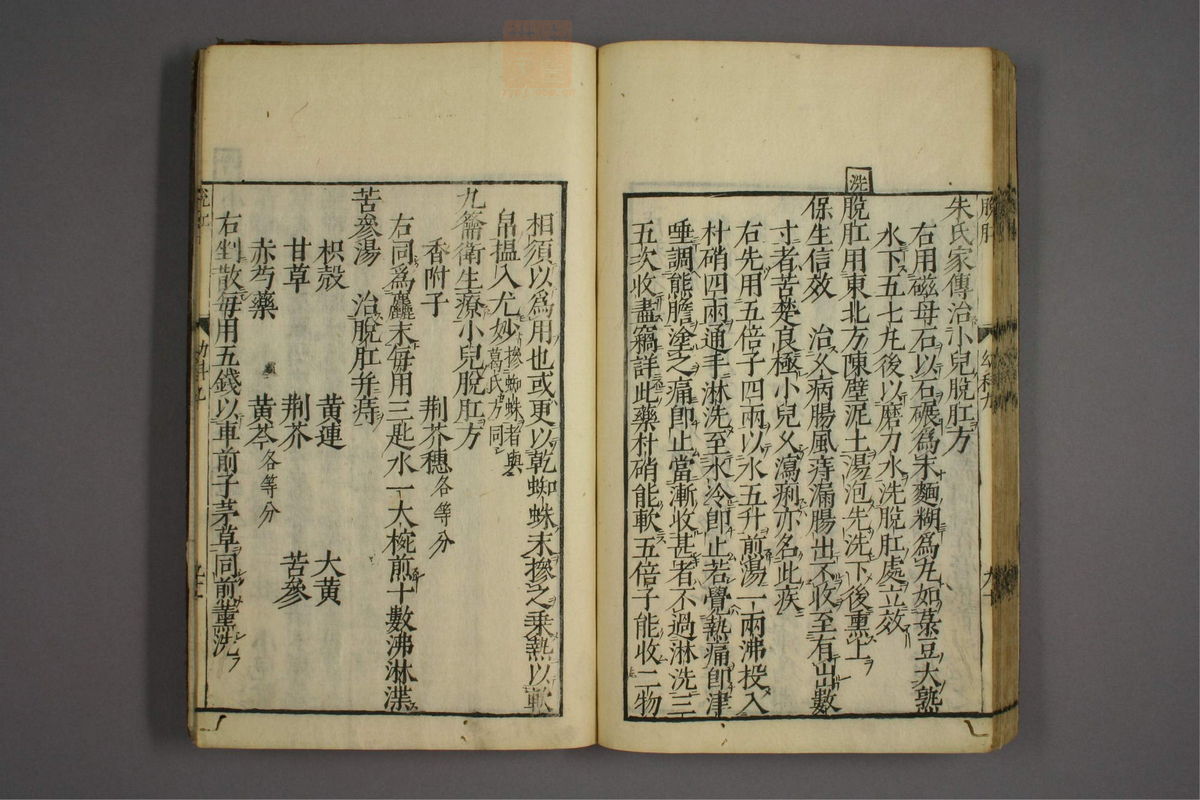 脫肛
幼科九
朱氏家傳治小兒脫肛方
右用磁母石以石碾爲末麵糊爲丸如菉豆大熟
水下五七丸後以磨刀水洗脫肛處立效
洗
脫肛用東北方陳壁泥土湯泡先洗下後熏上
保生信效　治久病腸風痔漏腸出不收至有出數
寸者苦楚良極小兒久瀉痢亦名此疾
右先用五倍子四兩以水五升煎湯一兩沸投入
朴硝四兩通手淋洗至水冷卽止若覺熱痛卽津
唾調熊膽塗之痛卽止當漸收甚者不過淋洗三
五次收盡竊詳此藥朴硝能軟五倍子能收二物
相須以爲用也或更以乾蜘蛛末摻之乗熱以軟
帛揾入尤妙摻蜘蛛者與葛氏方同
九籥衛生療小兒脫肛方
香附子　荆芥穗各等分
右同爲麤末每用三匙水一大椀煎十數沸淋渫
苦參湯　治脫肛并痔
枳殼　黃連　大黃
甘草　荆芥　苦參
赤芍藥　黃芩各等分
右剉散每用五錢以車前子茅草同煎薰洗